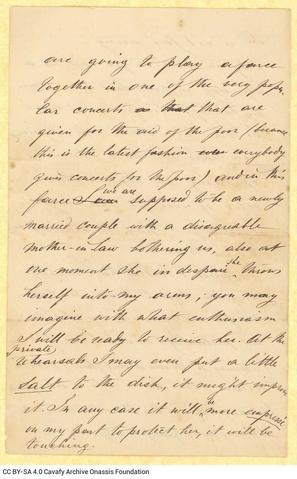 are going to play a farce
together in one of the very popu-
lar concerts as that that are
given for the aid of the poor (because
this is the latest fashion everybody
gives concerts for the poor) and in this
farce we are supposed to be a newly
married couple with a disagreeable
mother-in-law bothering us, also at
one moment she in despair the throws
herself into my arms; you may
imagine with what enthusiasm
I will be ready to receive her. At the
(private)
rehearsals I may even put a little
salt to the dish, it might improve
it. In any case it will, more
on my part to protect her, it will be
touching.
CC BY-SA 4.0 Cavafy Archive Onassis Foundation